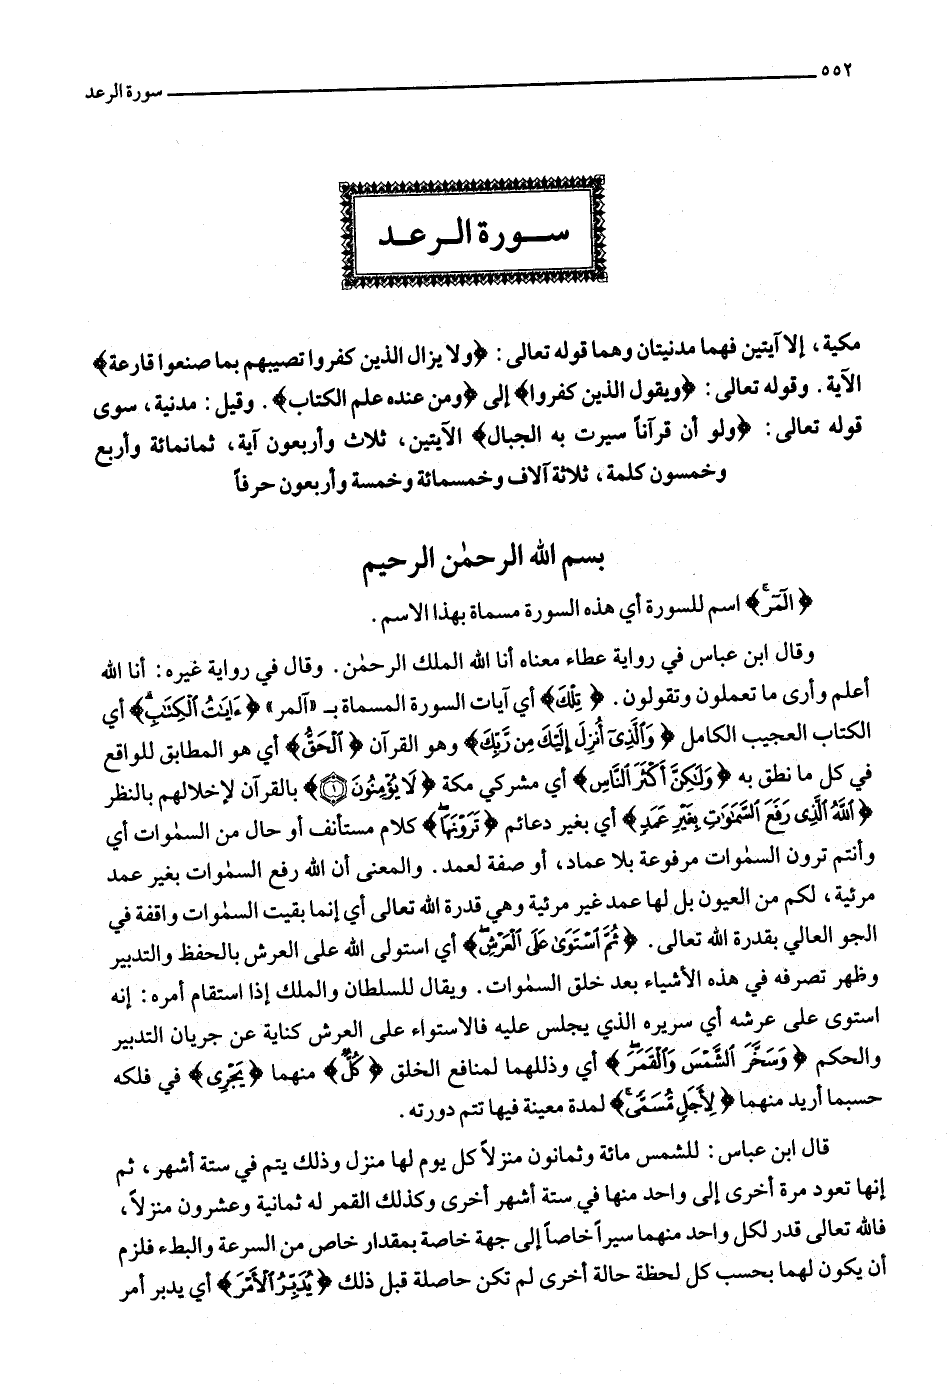 ٥٥٢
سورة الرعد
سورة الرعد
مكية، إلا آيتين فهما مدنيتان وهما قوله تعالى: ﴿ولا يزال الذين كفروا تصيبهم بما صنعوا قارعة﴾
الآية. وقوله تعالى: ﴿ويقول الذين كفروا﴾ إلى ﴿ومن عنده علم الكتاب﴾. وقيل: مدنية، سوى
قوله تعالى: ﴿ولو أن قرآناً سيرت به الجبال﴾ الآيتين، ثلاث وأربعون آية، ثمانمائة وأربع
وخمسون كلمة، ثلاثة آلاف وخمسمائة وخمسة وأربعون حرفاً
بسم الله الرحمٰن الرحيم
﴿الٓمٓرۚ﴾ اسم للسورة أي هذه السورة مسماة بهذا الاسم.
وقال ابن عباس في رواية عطاء معناه أنا الله الملك الرحمٰن. وقال في رواية غيره: أنا الله
أعلم وأرى ما تعملون وتقولون. ﴿تِلْكَ﴾ أي آيات السورة المسماة بـ «آلمر» ﴿ءَايَٰتُ ٱلْكِتَٰبِۗ﴾ أي
الكتاب العجيب الكامل ﴿وَٱلَّذِىٓ أُنزِلَ إِلَيْكَ مِن رَّبِّكَ﴾ وهو القرآن ﴿ٱلْحَقُّ﴾ أي هو المطابق للواقع
في كل ما نطق به ﴿وَلَٰكِنَّ أَكْثَرَ ٱلنَّاسِ﴾ أي مشركي مكة ﴿لَا يُؤْمِنُونَ ۝١﴾ بالقرآن لإخلالهم بالنظر
﴿ٱللَّهُ ٱلَّذِى رَفَعَ ٱلسَّمَٰوَٰتِ بِغَيْرِ عَمَدٍ﴾ أي بغير دعائم ﴿تَرَوْنَهَاۖ﴾ كلام مستأنف أو حال من السمٰوات أي
وأنتم ترون السمٰوات مرفوعة بلا عماد، أو صفة لعمد. والمعنى أن الله رفع السمٰوات بغير عمد
مرئية، لكم من العيون بل لها عمد غير مرئية وهي قدرة الله تعالى أي إنما بقيت السمٰوات واقفة في
الجو العالي بقدرة الله تعالى. ﴿ثُمَّ ٱسْتَوَىٰ عَلَى ٱلْعَرْشِۖ﴾ أي استولى الله على العرش بالحفظ والتدبير
وظهر تصرفه في هذه الأشياء بعد خلق السمٰوات. ويقال للسلطان والملك إذا استقام أمره: إنه
استوى على عرشه أي سريره الذي يجلس عليه فالاستواء على العرش كناية عن جريان التدبير
والحكم ﴿وَسَخَّرَ ٱلشَّمْسَ وَٱلْقَمَرَۖ﴾ أي وذللهما لمنافع الخلق ﴿كُلٌّ﴾ منهما ﴿يَجْرِى﴾ في فلكه
حسبما أريد منهما ﴿لِأَجَلٍ مُّسَمًّىۚ﴾ لمدة معينة فيها تتم دورته.
قال ابن عباس: للشمس مائة وثمانون منزلاً كل يوم لها منزل وذلك يتم في ستة أشهر، ثم
إنها تعود مرة أخرى إلى واحد منها في ستة أشهر أخرى وكذلك القمر له ثمانية وعشرون منزلاً،
فالله تعالى قدر لكل واحد منهما سيراً خاصاً إلى جهة خاصة بمقدار خاص من السرعة والبطء فلزم
أن يكون لهما بحسب كل لحظة حالة أخرى لم تكن حاصلة قبل ذلك ﴿يُدَبِّرُ ٱلْأَمْرَ﴾ أي يدبر أمر